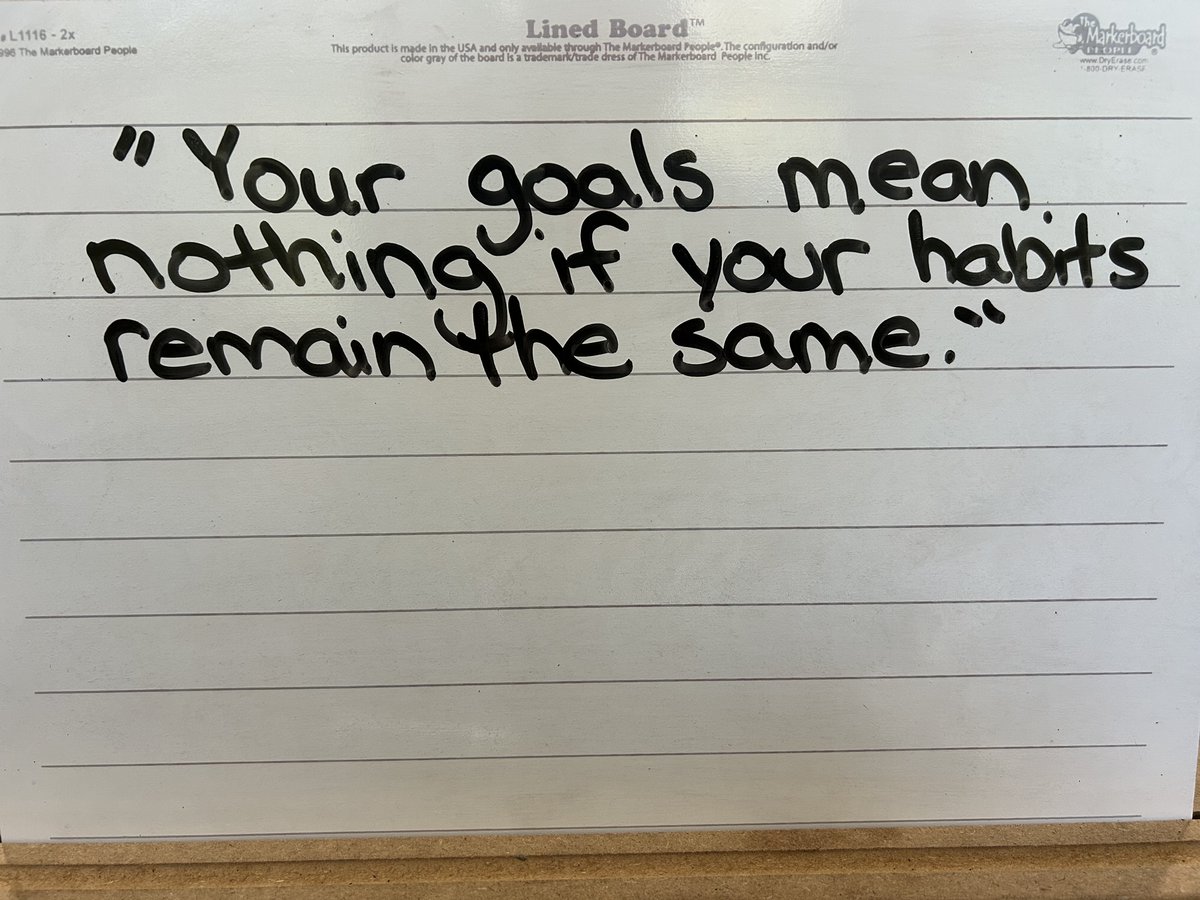 L1116 - 2x
996 The Markerboard People
Lined Board™
This product is made in the USA and only available through The Markerboard People®. The configuration and/or
color gray of the board is a trademark/trade dress of The Markerboard People Inc.
The
Markerboard
PEOPLE
www.DryErase.com
1-800-DRY ERASE
"Your goals mean
nothing if your habits
remain the same."